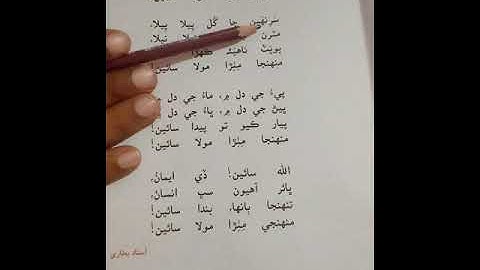 سرنهين جا گل پيلا پيلا،
مٽرن نيلا،
پوپٽ ناهيندا
منهنجا مِٺڙا مولا سائين!
پيءُ جي دل ۾، ماءُ جي دل ۾،
ڀيڻ جي دل ۾، ڀاءُ جي دل ۾
پيار ڪيو تو پيدا سائين!
منهنجا مِٺڙا مولا سائين!
الله سائين! ڏي ايمانُ،
ڀائر آهيون سڀ انسانُ،
تنهنجا ٻانها، بندا سائين!
منهنجي مِٺڙا مولا سائين!
استاد بخاري